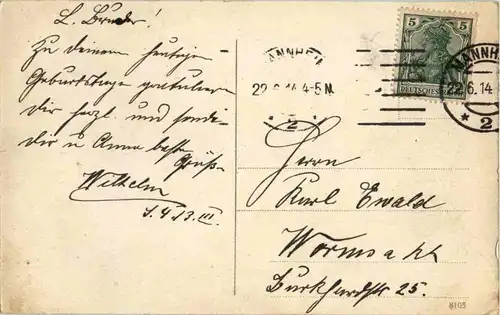 L. Bruder!
Zu Deinem heutigen
Geburtstage gratuliere
Dir herzl. und sende
dir u Anna beste
Grüße
Wilhelm
MANNHEIM
22.6.14.4-5N.
* 2 *
5 5
DEUTSCHES
MANNHEIM
22.6.14
* 2
Herrn
Karl Ewald
Worms a Rh
Burkhardstr 25.
8105